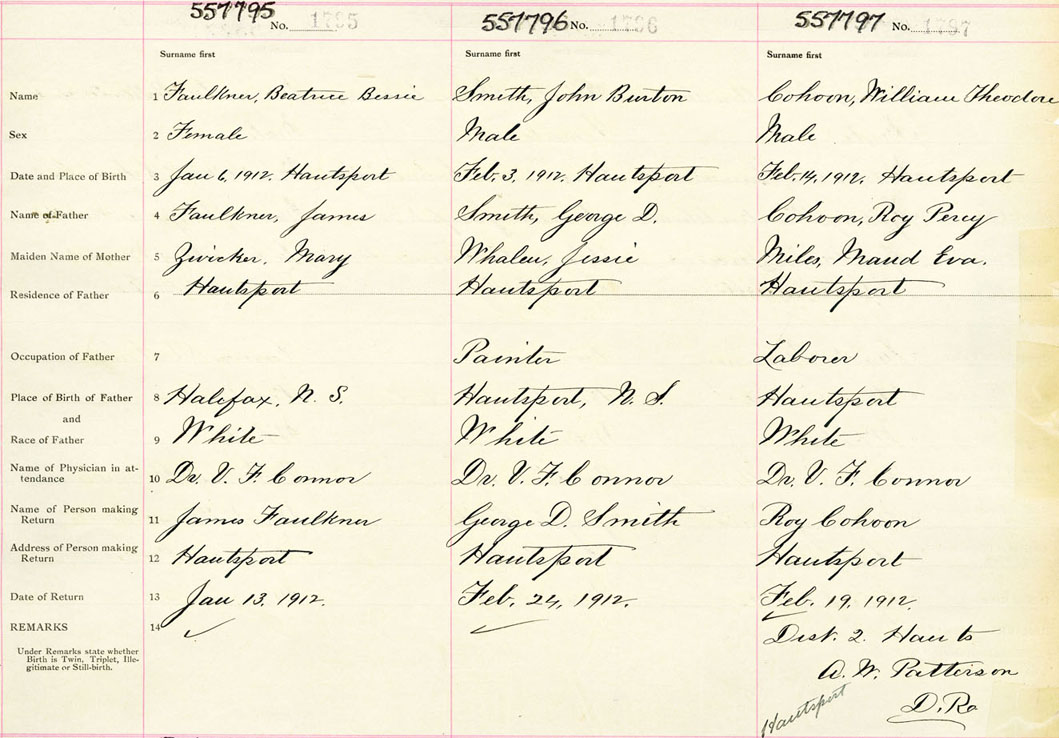 557795 No. 1795 557796 No. 1796 557797 No. 1797
Surname first Surname first Surname first
Name 1 Faulkner, Beatrice Bessie Smith, John Burton Cohoon, William Theodore
Sex 2 Female Male Male
Date and Place of Birth 3 Jan 6, 1912. Hantsport Feb. 3, 1912. Hantsport Feb. 14, 1912. Hantsport
Name of Father 4 Faulkner, James Smith, George D. Cohoon, Roy Percy
Maiden Name of Mother 5 Zwicker, Mary Whalen, Jessie Miles, Maud Eva.
Residence of Father 6 Hantsport Hantsport Hantsport
Occupation of Father 7 Painter Laborer
Place of Birth of Father 8 Halefax, N. S. Hantsport, N. S. Hantsport
and
Race of Father 9 White White White
Name of Physician in at-
tendance 10 Dr. V. F. Connor Dr. V. F. Connor Dr. V. F. Connor
Name of Person making
Return 11 James Faulkner George D. Smith Roy Cohoon
Address of Person making
Return 12 Hantsport Hantsport Hantsport
Date of Return 13 Jan 13, 1912. Feb. 24, 1912. Feb. 19, 1912.
REMARKS 14 ✓ ✓ ✓
Under Remarks state whether
Birth is Twin, Triplet, Ille-
gitimate or Still-birth.
Dist. 2. Hants
A. W. Patterson
Hantsport D. R.